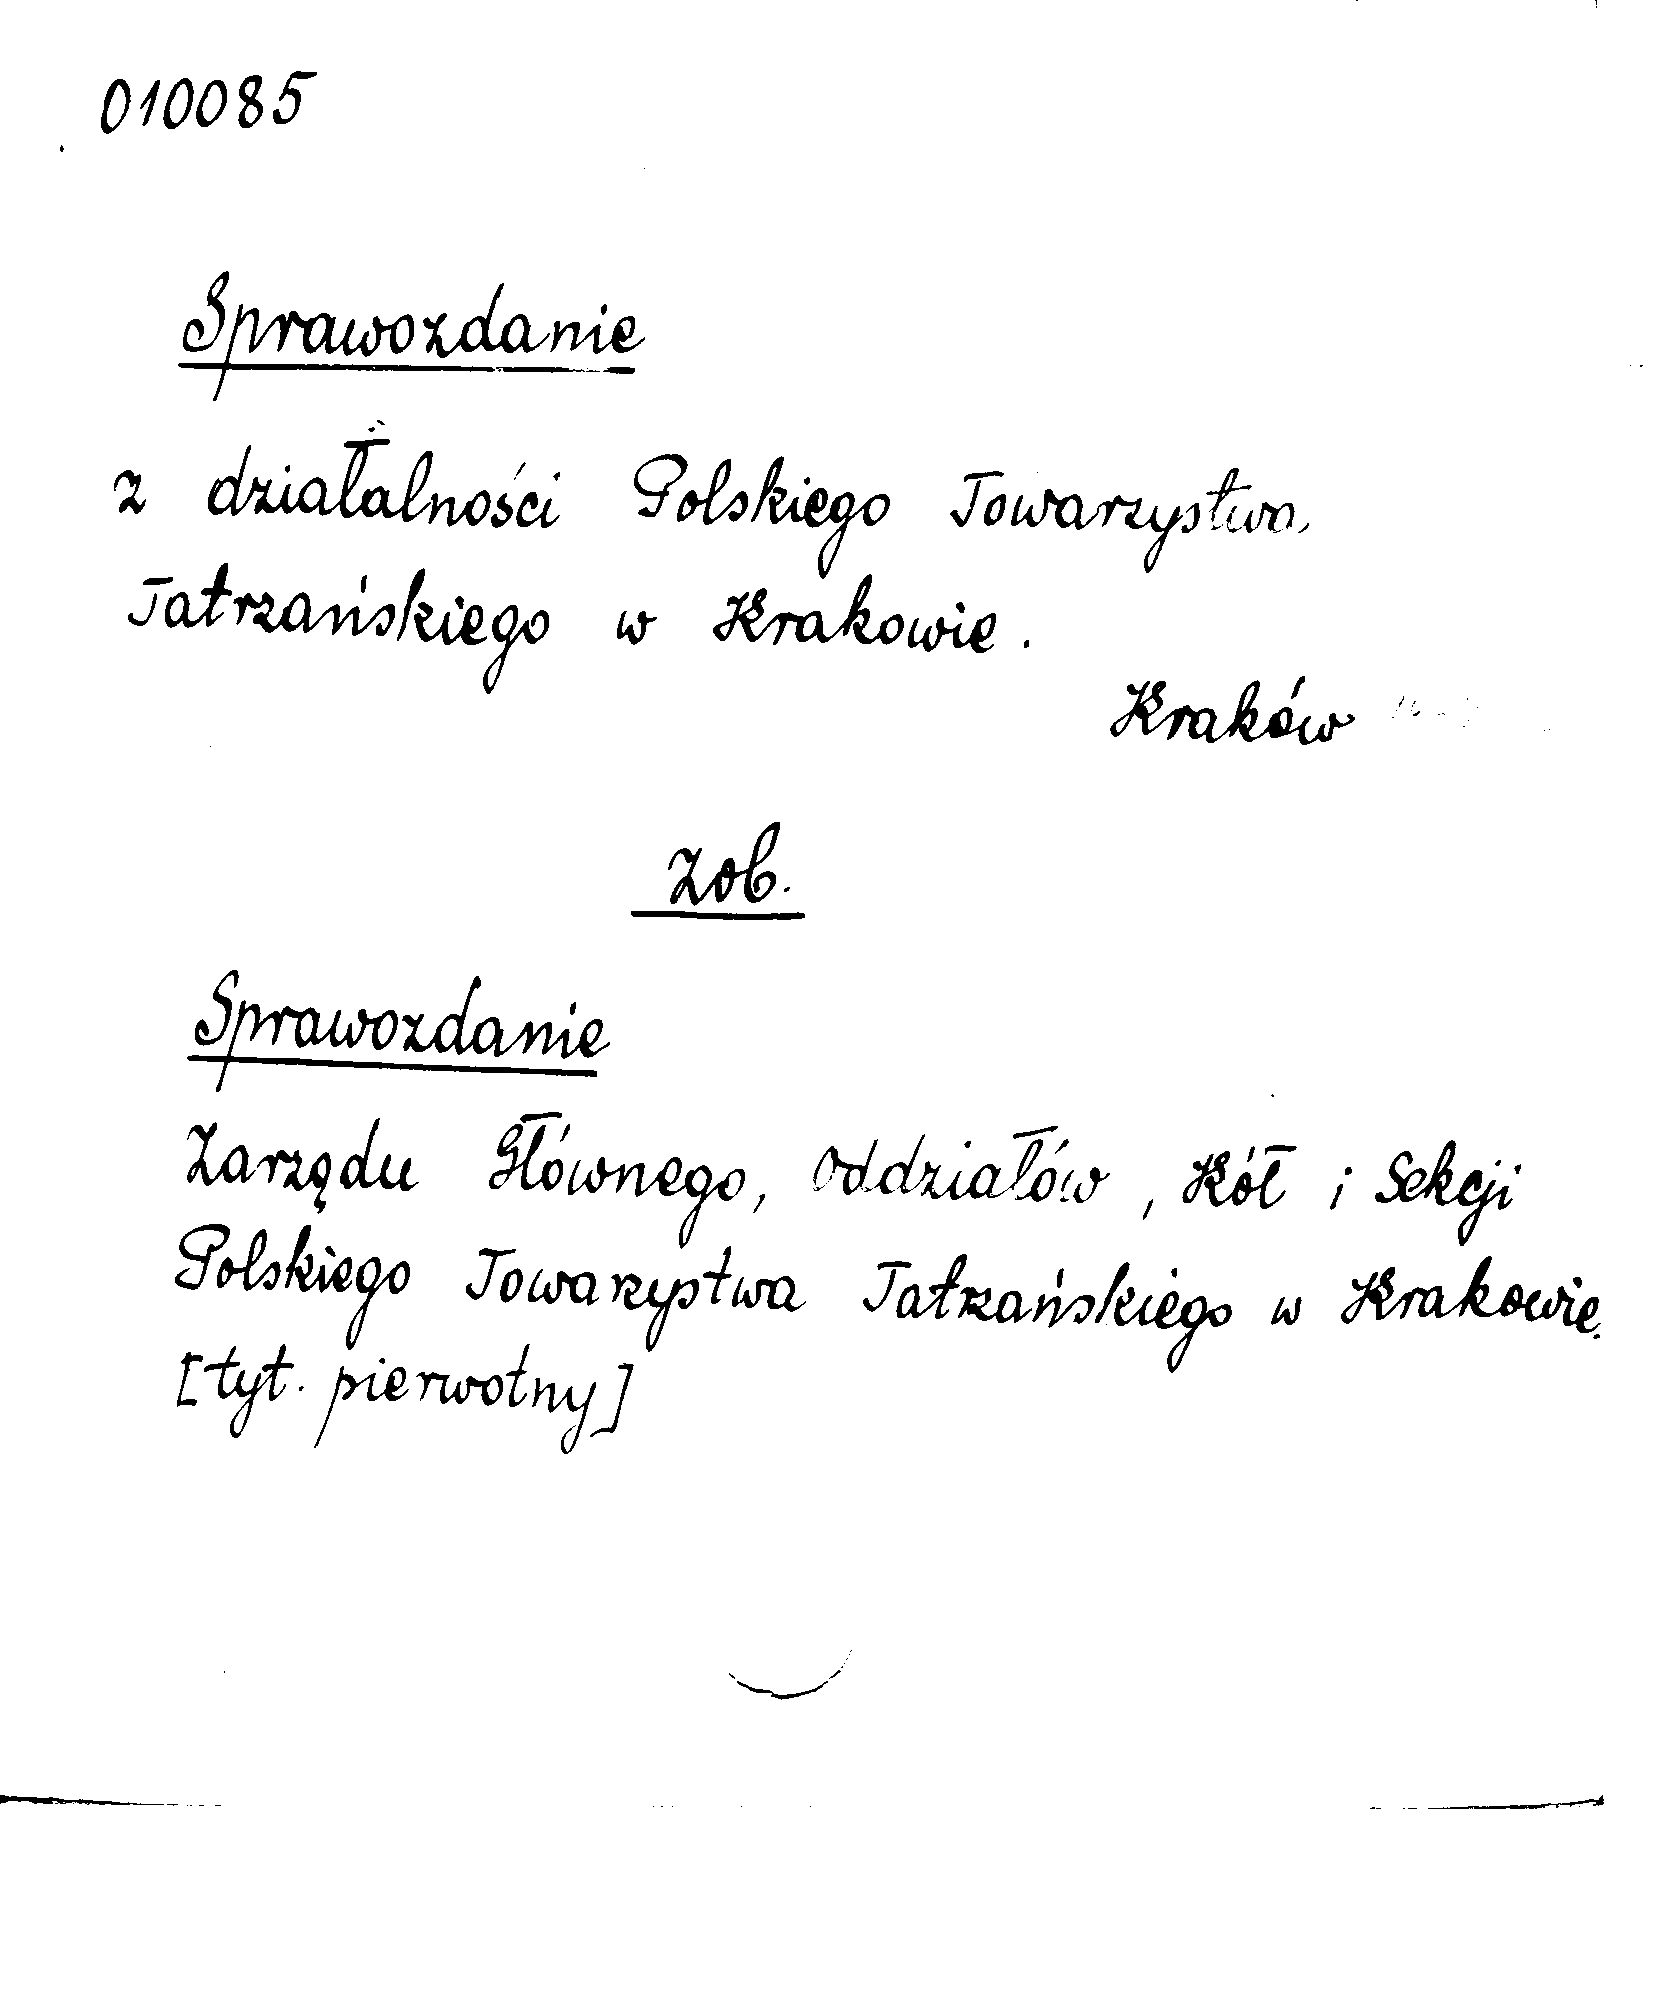 010085
Sprawozdanie
z działalności Polskiego Towarzystwa
Tatrzańskiego w Krakowie.
Kraków
Zob.
Sprawozdanie
Zarządu Głównego, Oddziałów, Kół i Sekcji
Polskiego Towarzystwa Tatrzańskiego w Krakowie.
[tyt. pierwotny]